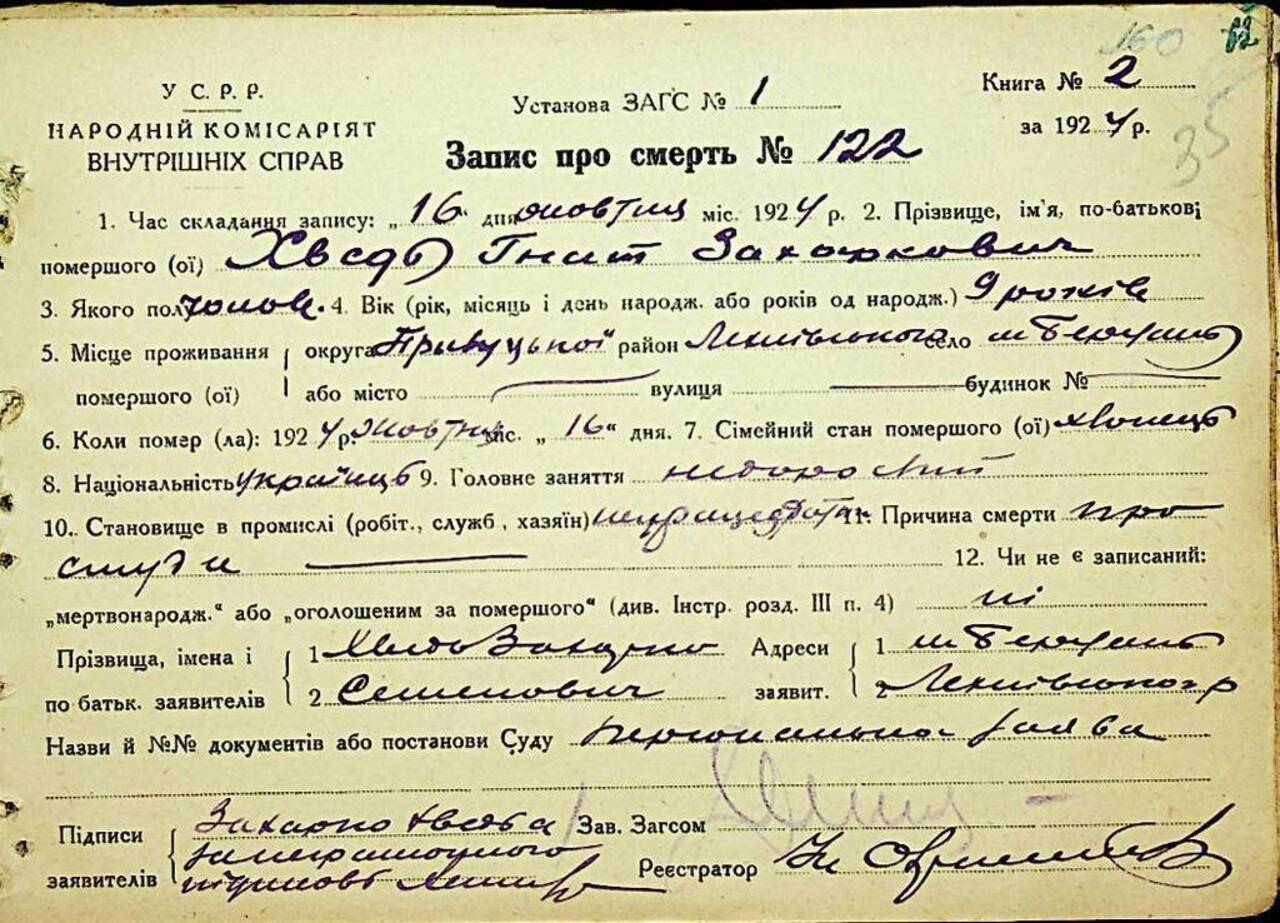 160
У С. Р. Р.
НАРОДНІЙ КОМІСАРІЯТ
ВНУТРІШНІХ СПРАВ
Установа ЗАГС № 1
Книга № 2
за 1924 р.
35
Запис про смерть № 122
1. Час складання запису: „16“ дня жовтня міс. 1924 р. 2. Прізвище, ім'я, по-батькові
помершого (ої) Гнат Захаркович
3. Якого полу чолов. 4. Вік (рік, місяць і день народж. або років од народж.) 9 років
5. Місце проживання помершого (ої)
округа Прилуцької район село м Березань
або місто — вулиця — будинок № —
6. Коли помер (ла): 1924 р. жовтня міс. „16“ дня. 7. Сімейний стан помершого (ої) хлопець
8. Національність українець 9. Головне заняття недорослий
10. Становище в промислі (робіт., служб, хазяїн) 11. Причина смерти про
студи — 12. Чи не є записаний:
„мертвонародж.“ або „оголошеним за помершого“ (див. Інстр. розд. III п. 4) ні
Прізвища, імена і по батьк. заявителів
1 Захарко
2 Семенович
Адреси заявит.
1 м Березань
2
Назви й №№ документів або постанови Суду персональна заява
Підписи заявителів
Захарко
за неграмотного
підписав
Зав. Загсом
Реєстратор